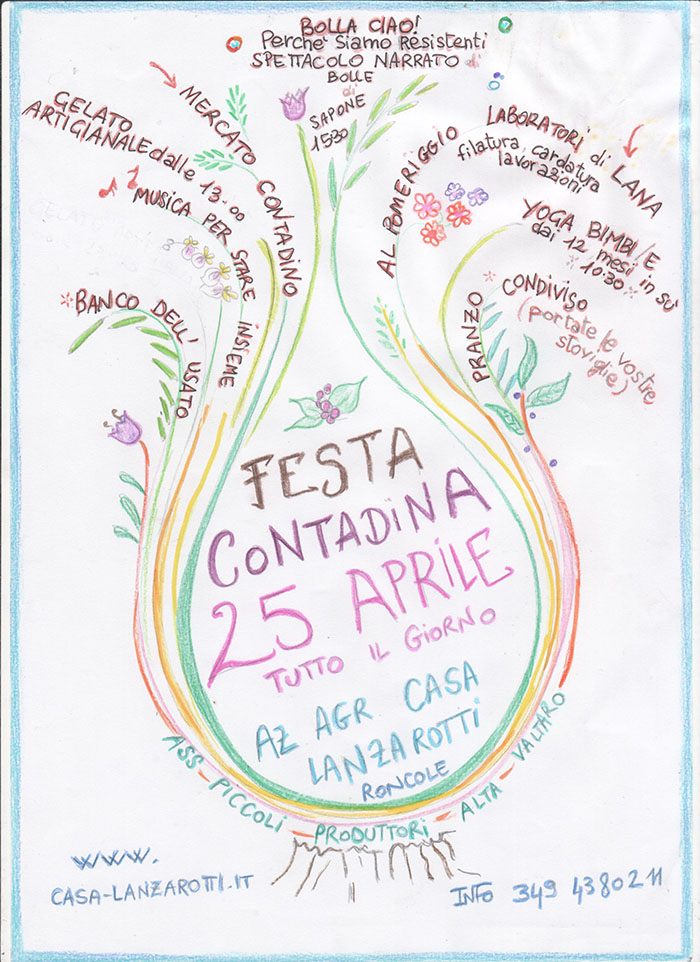 BOLLA CIAO!
Perchè Siamo Resistenti
SPETTACOLO NARRATO di
BOLLE
di
SAPONE
1530
MERCATO CONTADINO
GELATO
ARTIGIANALE dalle 13.00
MUSICA PER STARE INSIEME
BANCO DELL' USATO
AL POMERIGGIO
LABORATORI di LANA
filatura, cardatura
lavorazioni
YOGA BIMBI/E
dai 12 mesi in sù
10:30
PRANZO CONDIVISO
(portate le vostre
stoviglie)
FESTA
CONTADINA
25 APRILE
TUTTO IL GIORNO
AZ AGR CASA
LANZAROTTI
RONCOLE
ASS - PICCOLI - PRODUTTORI - ALTA - VALTARO
www.
CASA-LANZAROTTI.IT
INFO 349 4380211